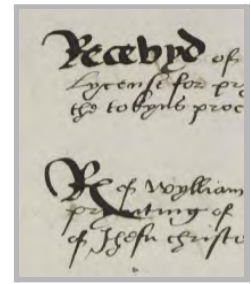 Recevyd of
lycense for pr
the tokyns proc
R of Wylliam
prynting of
of Jhesu christe